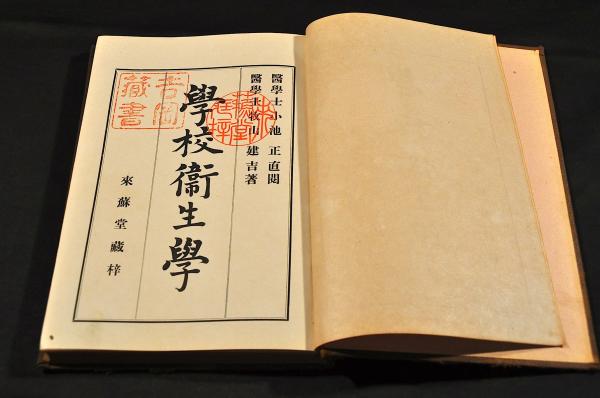 醫學士小池 正直閱
醫學士牧山 建吉著
學校衞生學
來蘇堂藏梓
吉岡
藏書